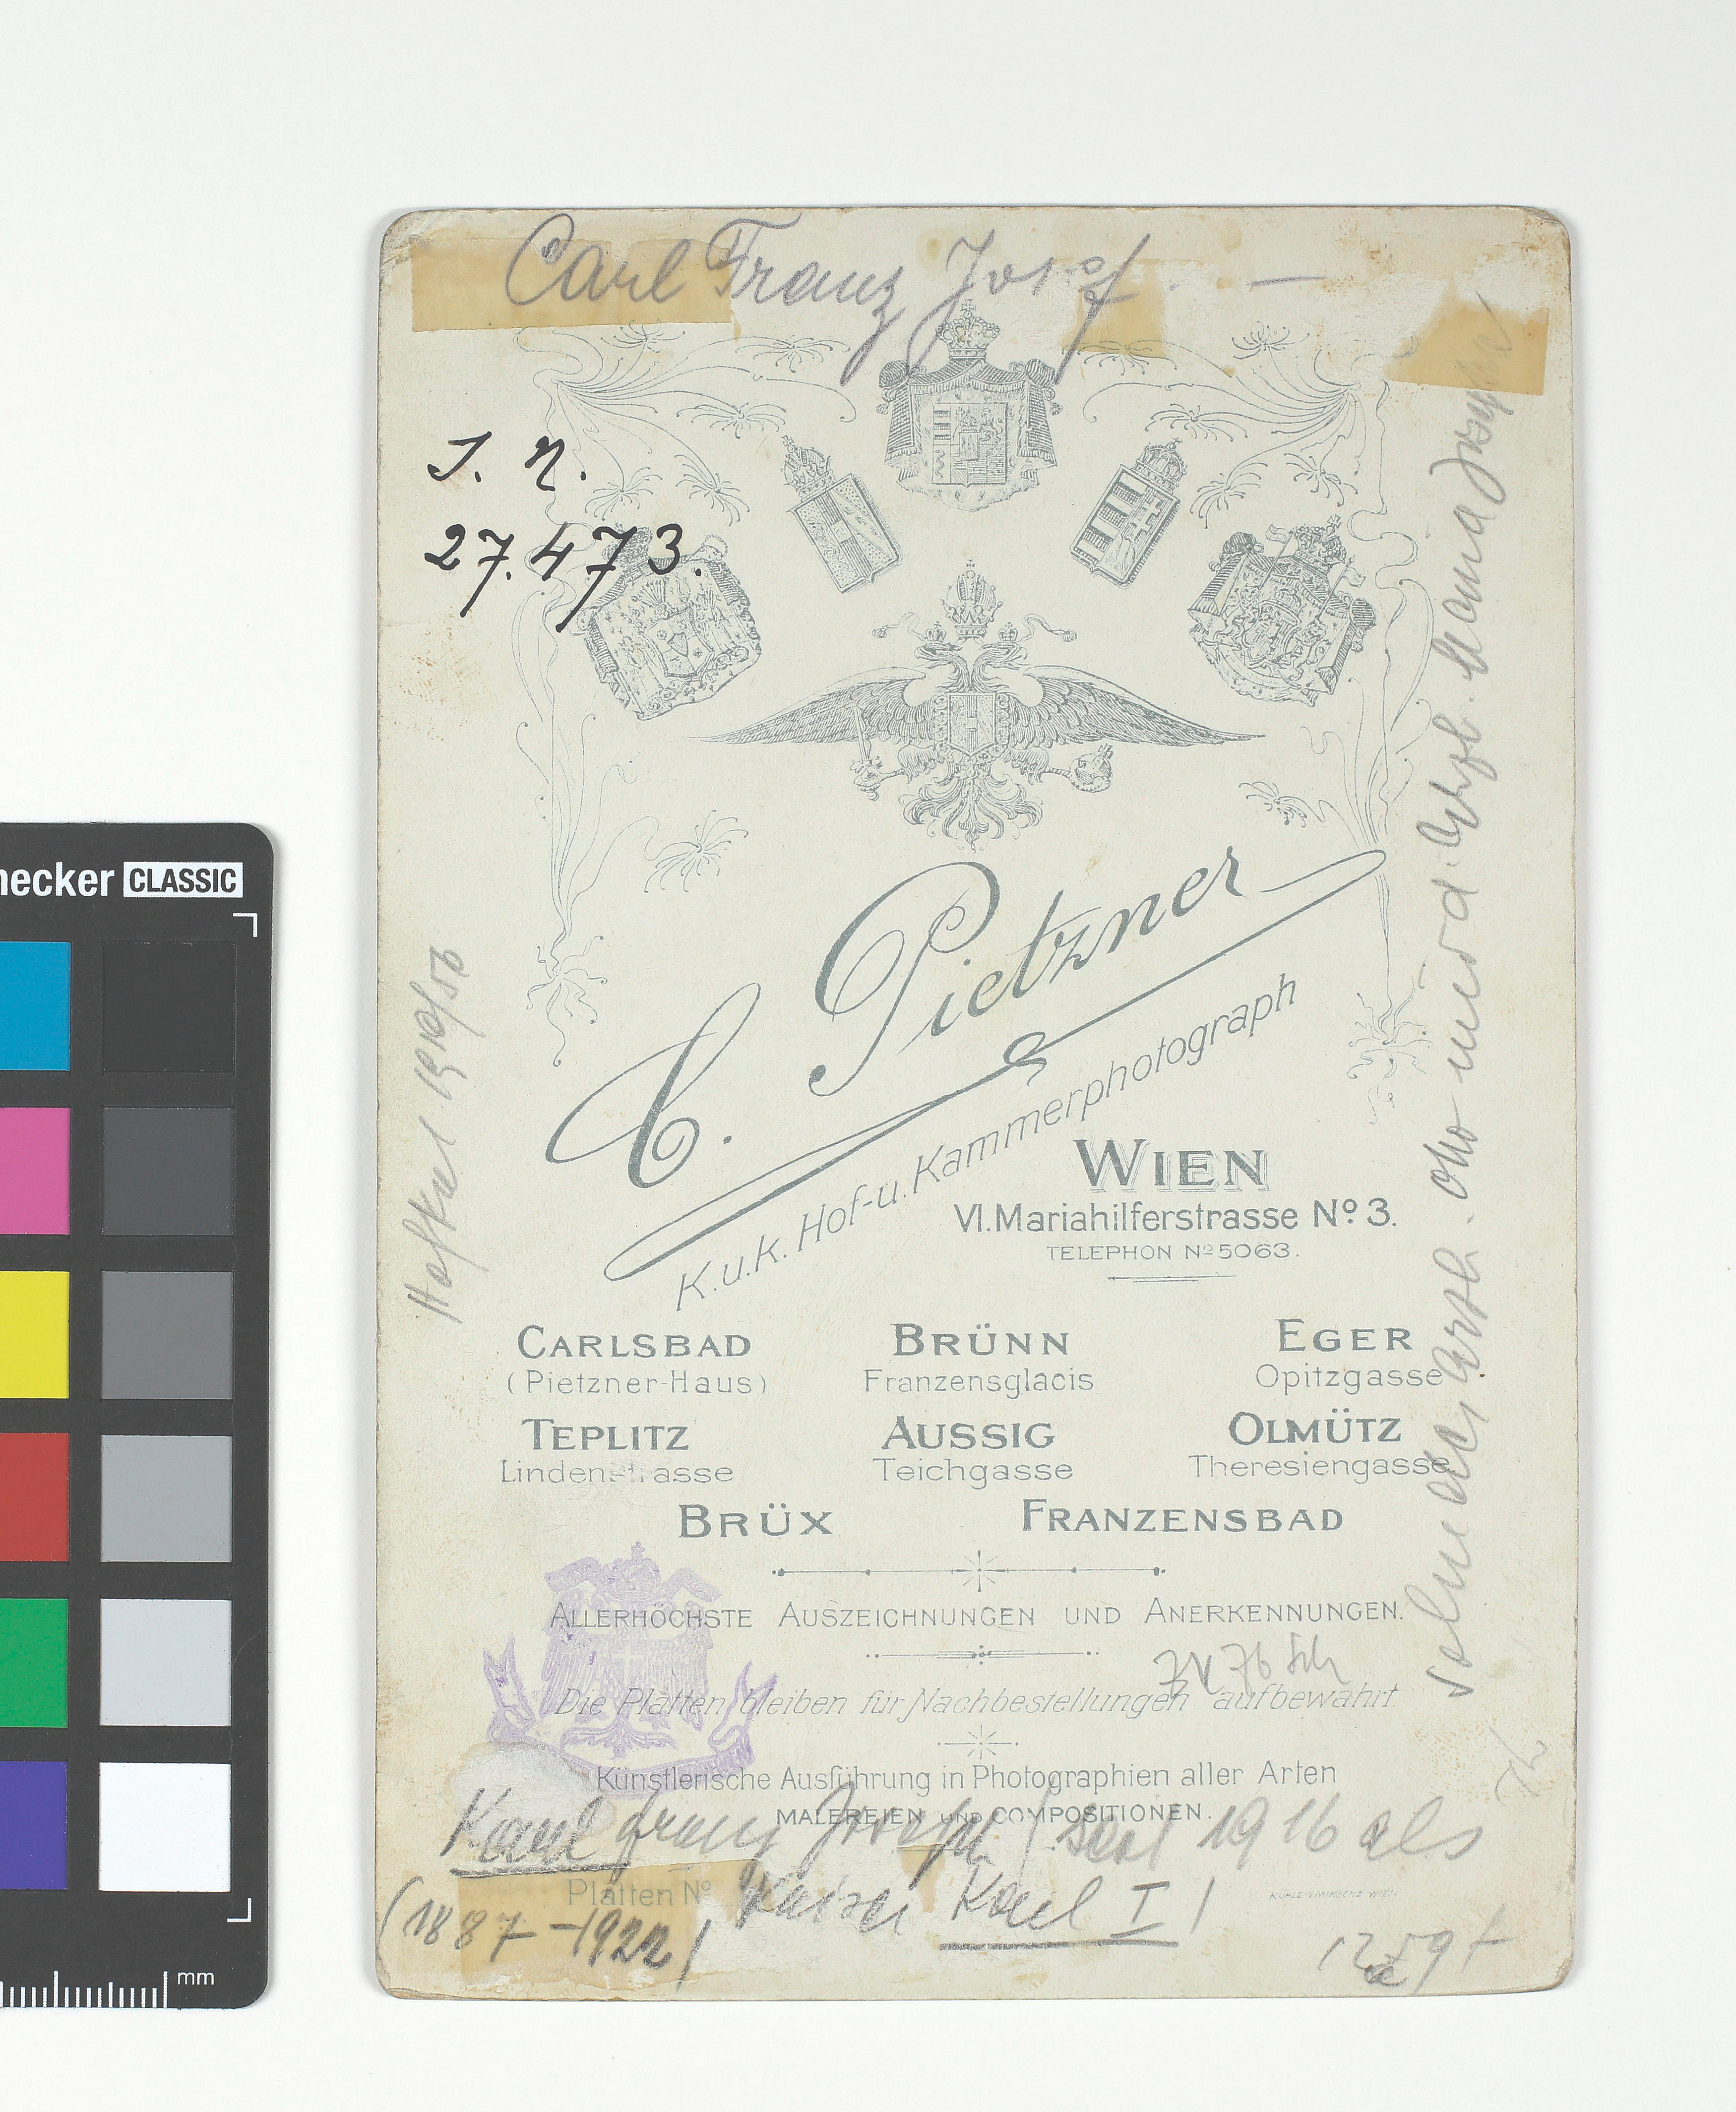 Carl Franz Josef. —
J. N.
27.473.
C. Pietzner
K.u.k. Hof-u. Kammerphotograph
WIEN
VI. Mariahilferstrasse Nº 3.
TELEPHON Nº 5063.
CARLSBAD
(Pietzner-Haus)
BRÜNN
Franzensglacis
EGER
Opitzgasse
TEPLITZ
Lindenstrasse
AUSSIG
Teichgasse
OLMÜTZ
Theresiengasse
BRÜX
FRANZENSBAD
ALLERHÖCHSTE AUSZEICHNUNGEN UND ANERKENNUNGEN.
Die Platten bleiben für Nachbestellungen aufbewahrt
Künstlerische Ausführung in Photographien aller Arten
MALEREIEN UND COMPOSITIONEN.
Karl Franz Joseph (seit 1916 als
Platten Nº
Kaiser Karl I)
(1887-1922)
Sohn des Erzh. Otto und d. Erzh. Maria Josepha
necker CLASSIC
mm